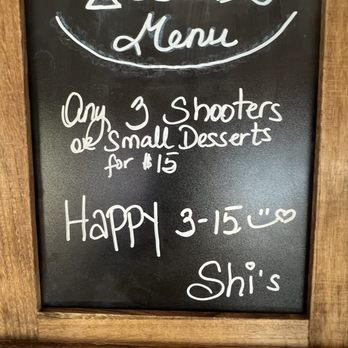 Menu
Any 3 Shooters
or Small Desserts
for $15
Happy 3-15
Shi's